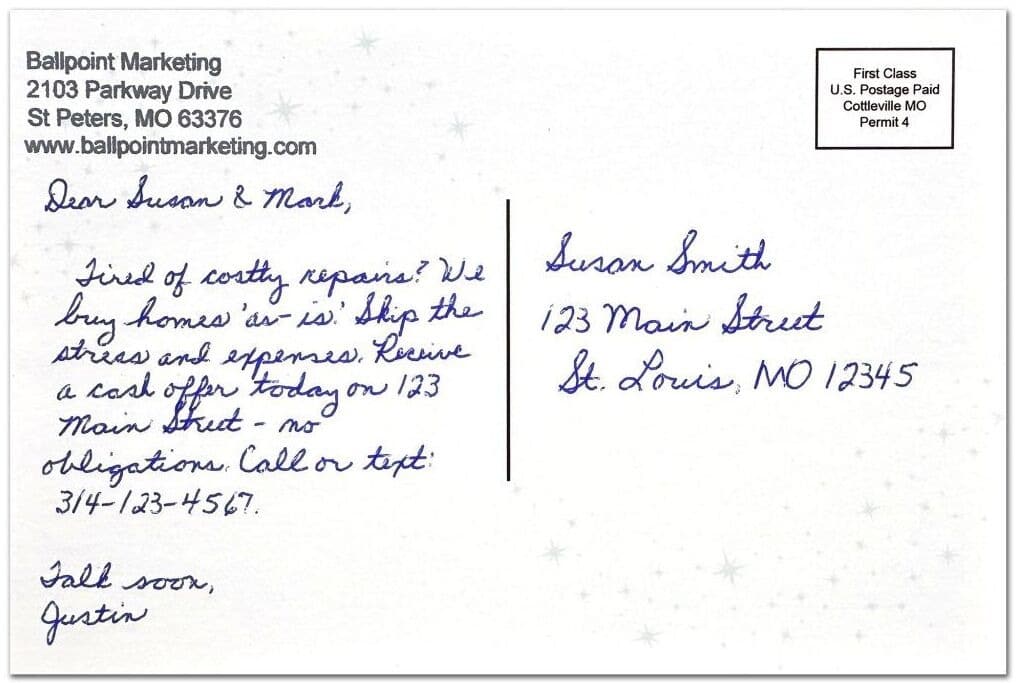 Ballpoint Marketing
2103 Parkway Drive
St Peters, MO 63376
www.ballpointmarketing.com
First Class
U.S. Postage Paid
Cottleville MO
Permit 4
Dear Susan & Mark,
Tired of costly repairs? We
buy homes 'as-is.' Skip the
stress and expenses. Receive
a cash offer today on 123
Main Street - no
obligations. Call or text:
314-123-4567.
Talk soon,
Justin
Susan Smith
123 Main Street
St. Louis, MO 12345